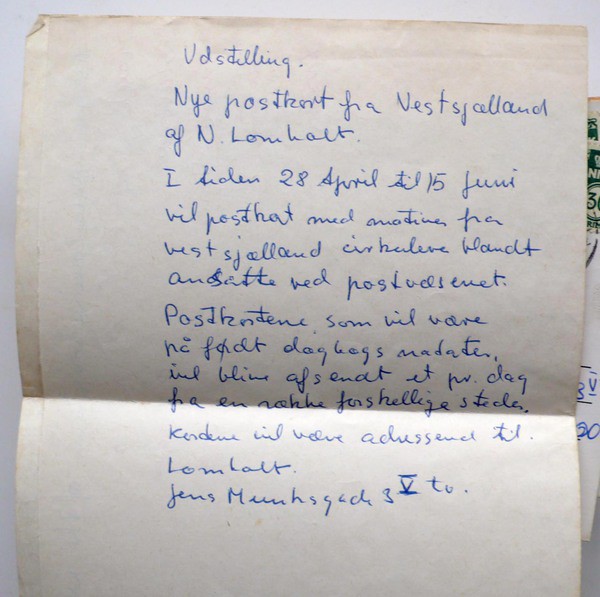 Udstilling.
Nye postkort fra Vestsjælland
af N. Lomholt.
I tiden 28 April til 15 Juni
vil postkort med motiver fra
vestsjælland cirkulere blandt
ansatte ved postvæsenet.
Postkortene, som vil være
på født dagbogs
vil blive afsendt et pr. dag
fra en række forskellige steder.
Kortene vil være adresseret til.
Lomholt.
Jens Munksgade 3 V tv.
30
3 V